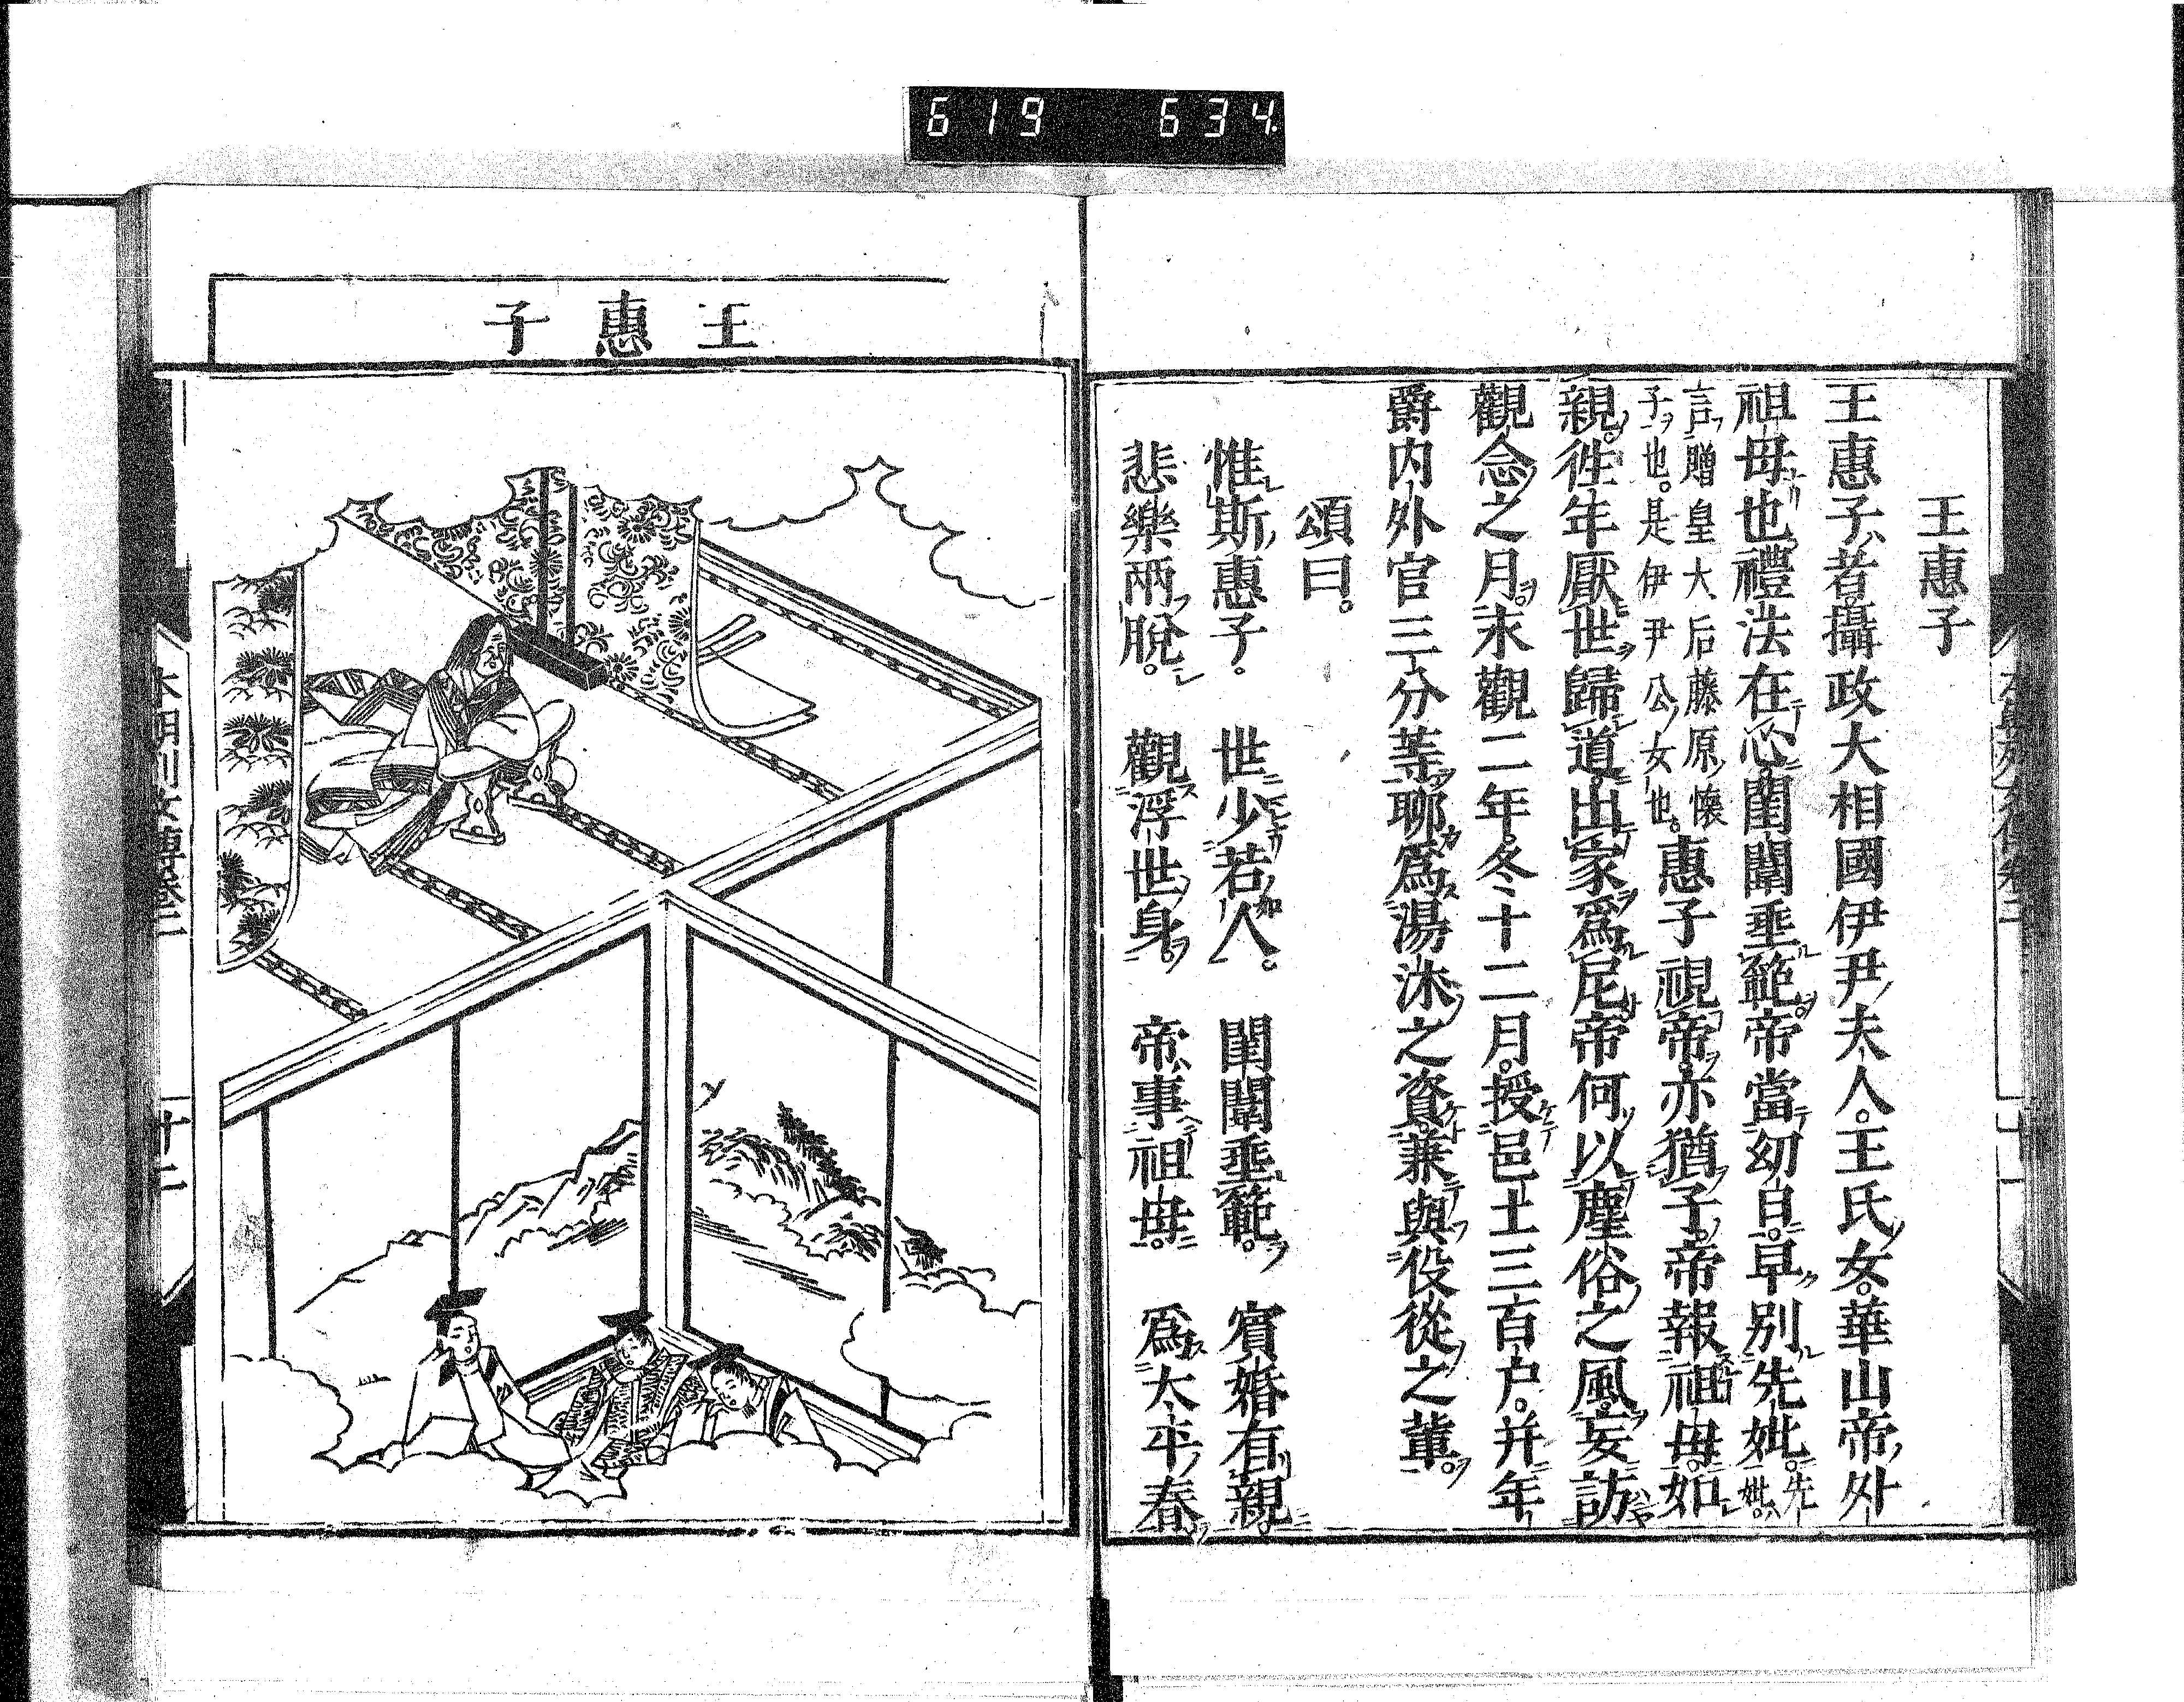 619 634
王惠子
王惠子者攝政大相國伊尹夫人。王氏女。華山帝外
祖母也禮法在心閨閫垂範帝當幼日。早別先妣。先妣。
言贈皇大后藤原懷
子也。是伊尹公女也。惠子視帝亦猶子。帝報祖母如
親。徃年厭世歸道出家爲尼帝何以塵俗之風妄訪
觀念之月。永觀二年冬十二月。授邑土三百户。并年
爵内外官三分等聊爲湯沐之資兼與役從之輩。
頌曰。
惟斯惠子。世少若人。閨閫垂範。賓婚有親。
悲樂兩脱。觀浮世身。帝事祖母。爲太平春。
王惠子
本朝列女傳卷二
十二